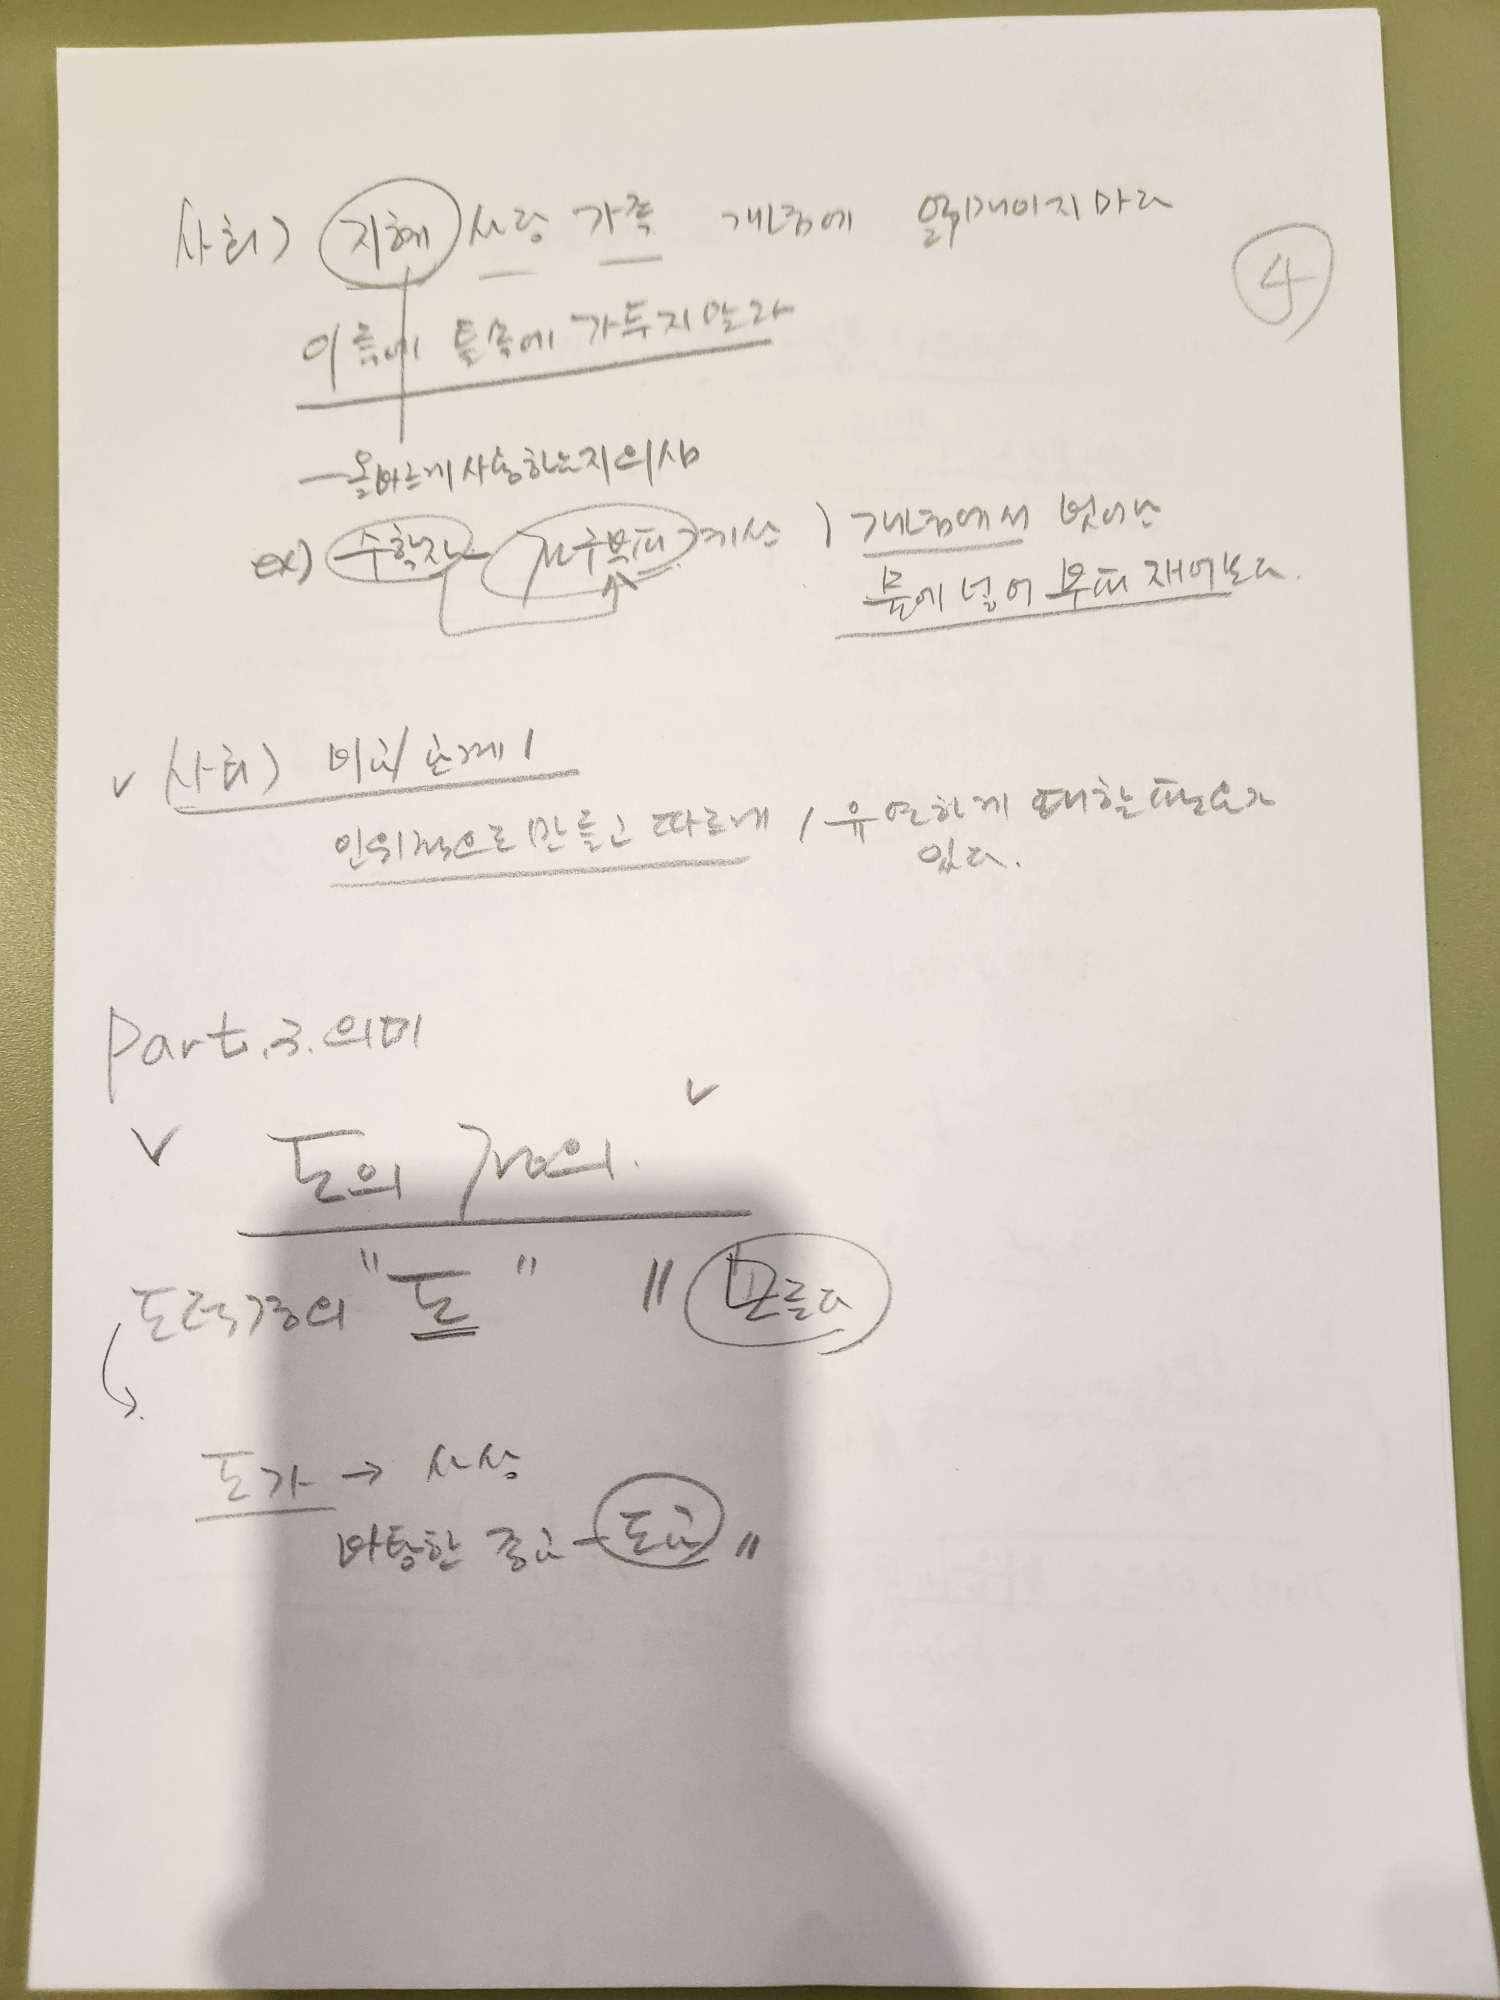 사회) 지혜 사랑 가족 개념에 얽매이지마라
④
이름에 틀속에 가두지말라
—올바르게사용하는지의심
ex) 수학자— 전구부피 계산 ) 개념에서 벗어난
물에 넣어 부피 재어보다.
✓ 사회) 비교/순계 /
인위적으로 만들고 따르게 / 유연하게 대할 필요가
있다.
Part.3.의미
✓ 도의 정의. ✓
도덕경의 "도" 〃 모른다
도가 → 사상
바탕한 종교 — 도교 〃